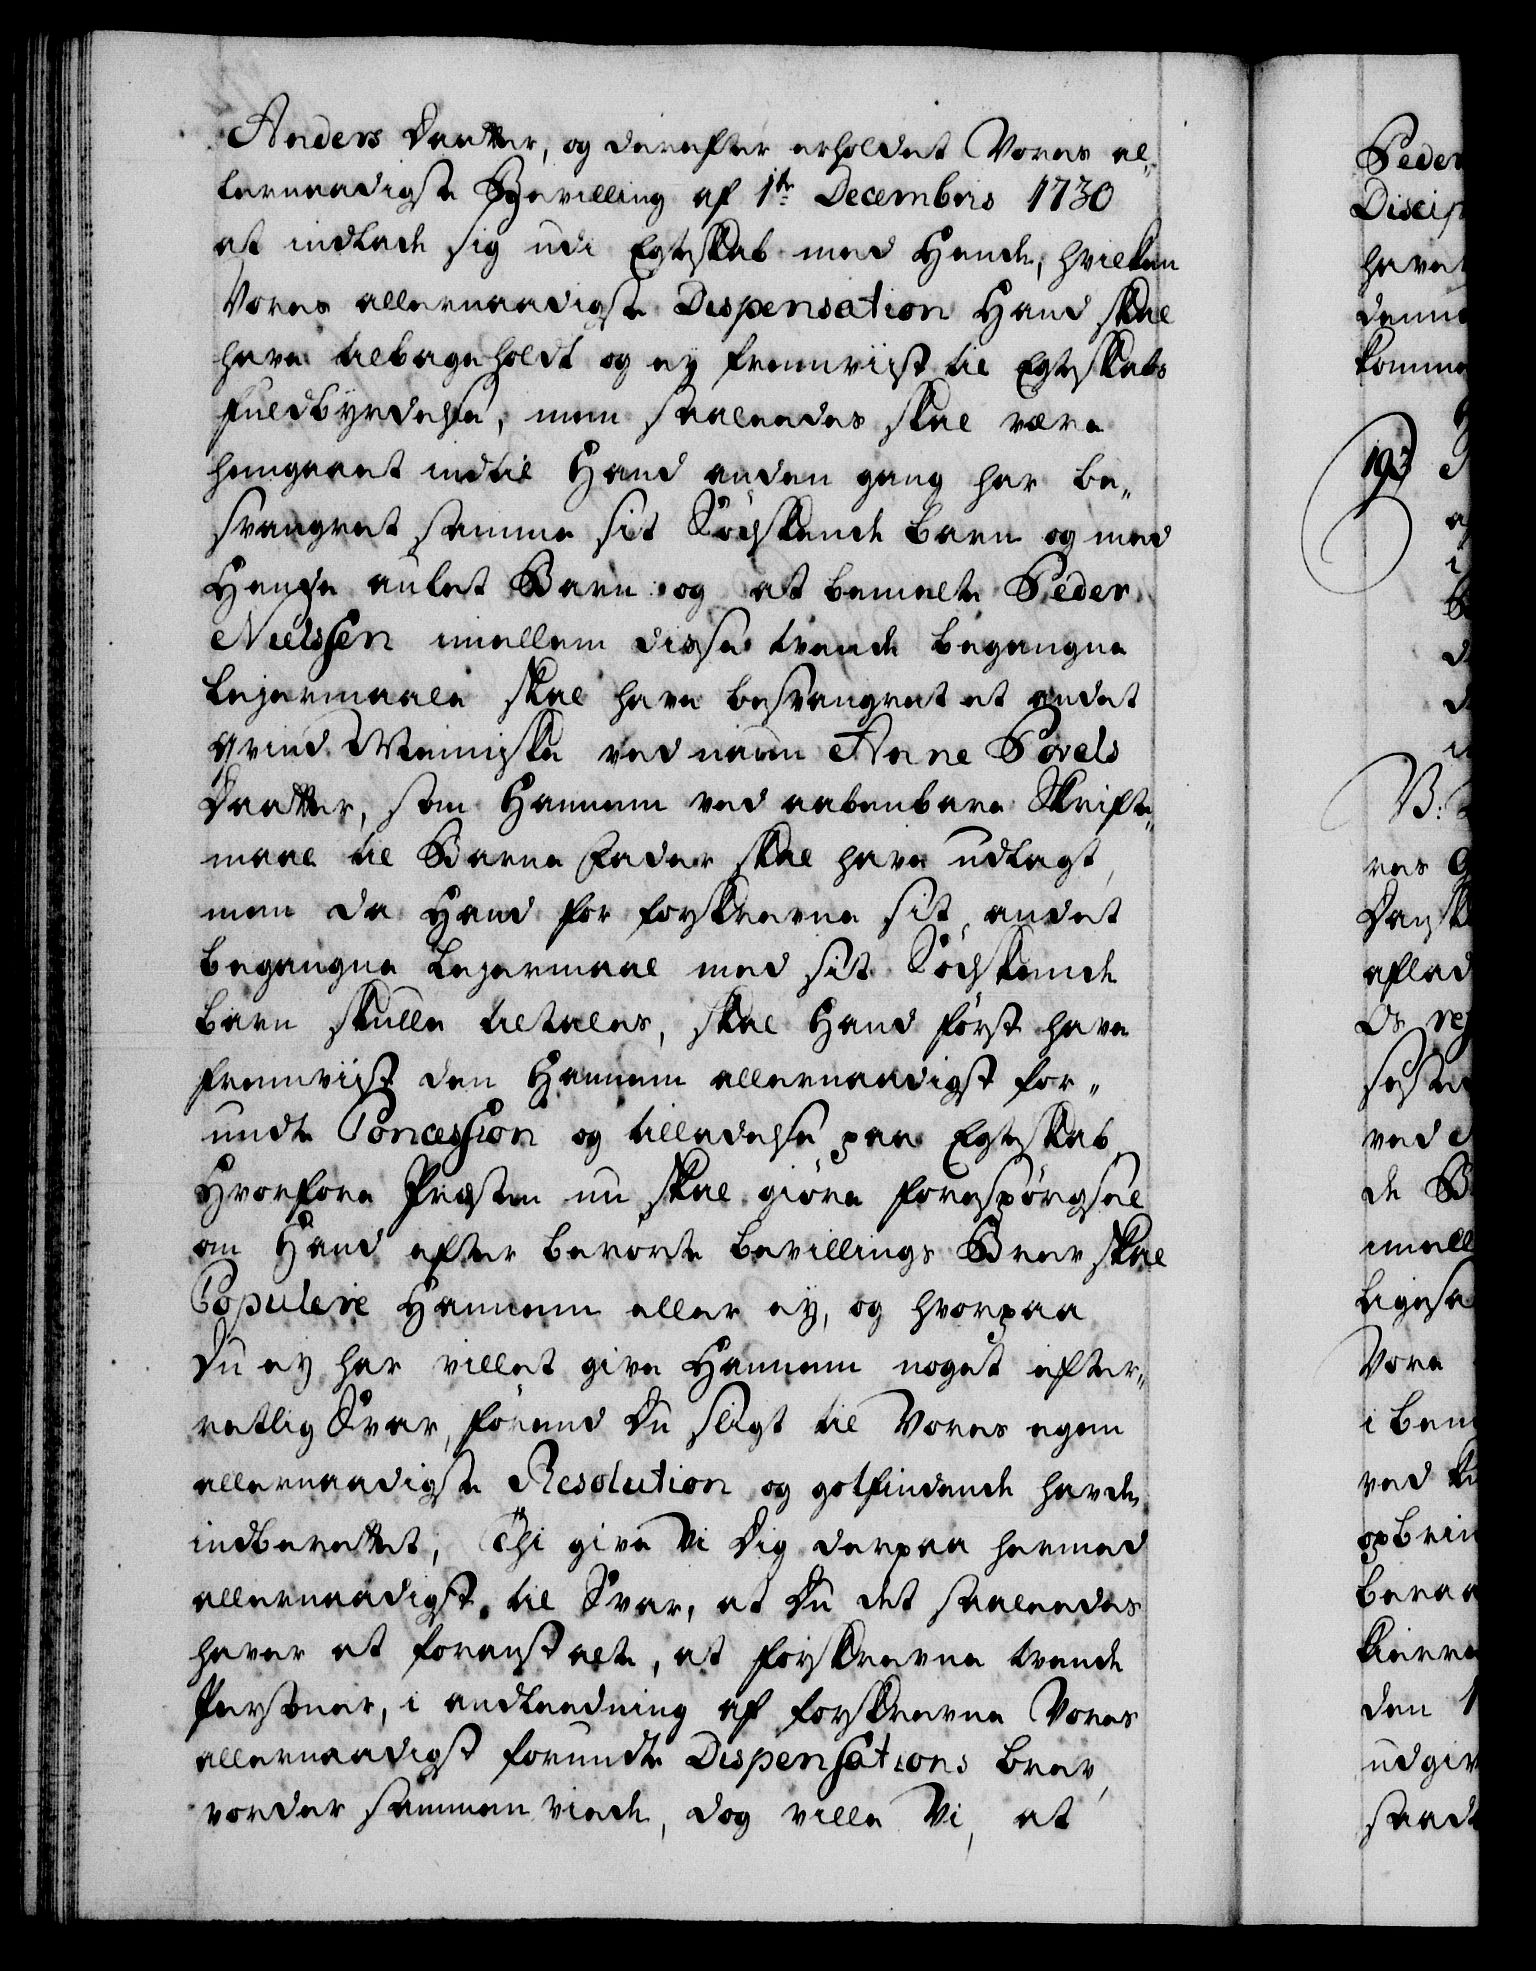 Anders Daatter, og derefter erholdet Vores al„
lernaadigste Bevilling af 1te Decembris 1730
at indlade sig udi Egteskab med Hende, hvilken
Vores allernaadigste Dispensation Hand skal
have tilbageholdt og ey fremviist til Egteskabs
fuldbyrdelse, men saaleedes skal være
hengaaet indtil Hand anden gang har be„
svangret samme sit Södskende barn og med
Hende aulet Barn og at bemelte Peder
Nielssen imellem disse tvende begangne
Lejermaale skal have besvangret et andet
qvind Menniske ved naun Anne Povels
Daatter, som Hannem ved aabenbare Skrifte„
maal til Barne Fader skal have udlagt,
men da Hand for forskrevne sit andet
begangne Lejermaal med sit Södskende
barn skulle tiltales, skal Hand först have
fremviist den Hannem allernaadigst for„
undte Concession og tilladelse paa Egteskab,
Hvorfore Præsten nu skal giöre forespörgsel
om Hand efter berörte bevillings Brev skal
Copulere Hannem eller ey, og hvorpaa
Du ey har villet give Hannem noget efter„
retlig Svar, förend Du sligt til Vores egen
allernaadigste Resolution og gotfindende havde
indberettet, Thi give Vi Dig derpaa hermed
allernaadigst til Svar, at Du det saaleedes
haver at foranstalte, at forskrevne tvende
Persöner, i andleedning af forskrevne Vores
allernaadigst forundte Dispensations brev,
vorder sammen viede, dog ville Vi, at
Peder
have
komme
193
V:
res
aflad
ved
de
imell
ligesa
Vore
i bem
ved
opbrin
beraa
den
udgiv
saad